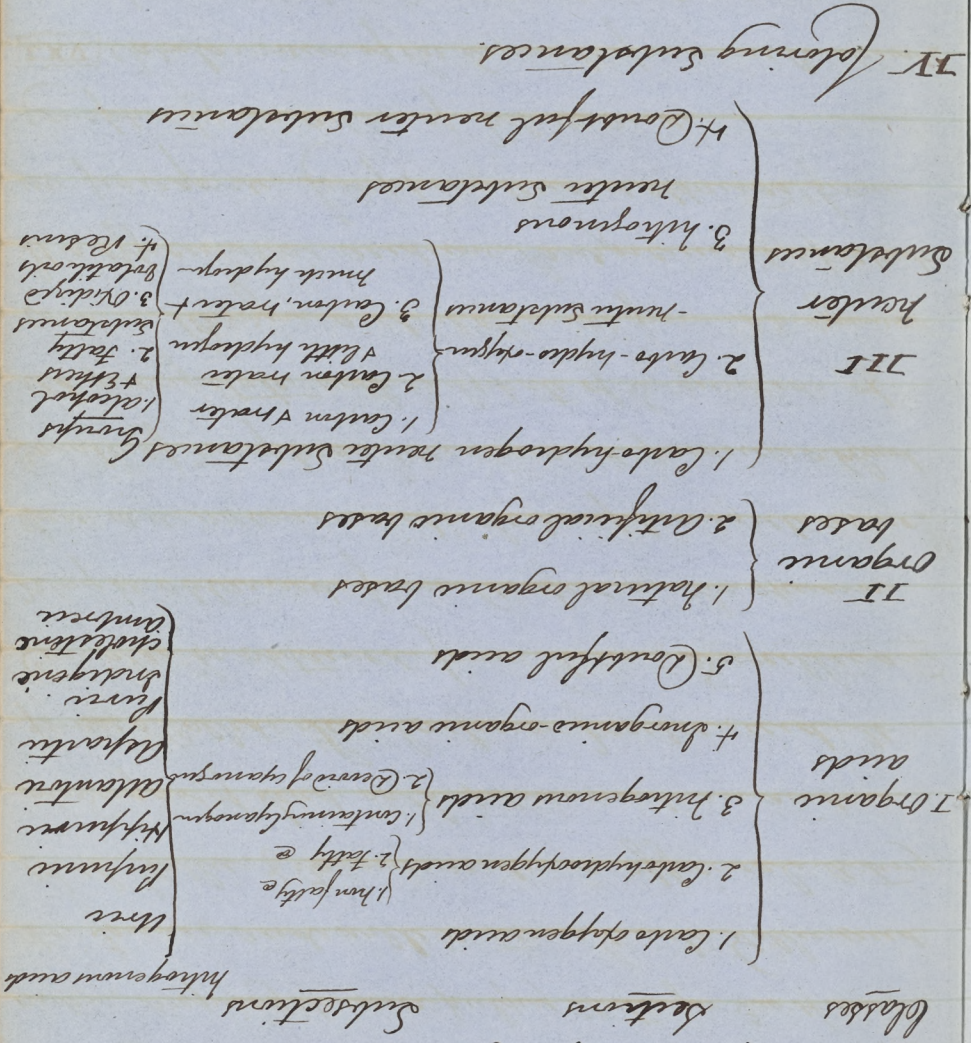 Classes Sections Subsections
nitrogenous acids
I. Organic acids
1. Carbo oxygen acids
2. Carbohydrooxygen acids
1. Non fatty @
2. Fatty @
3. Nitrogenous acids
1. Containing Cyanogen
2. Devoid of Cyanogen
4. Inorganic-organic acids
5. Doubtful acids
Uric
Purpuric
Hippuric
Allantoic
Aspartic
Purric
Indigoic
Cholesteric
Ambreic
II
Organic
bases
1. Natural organic bases
2. Artificial organic bases
III
neuter
Substances
1. Carbo-hydrogen neuter Substances
2. Carbo-hydro-oxygen
-neuter Substances
1. Carbon & water
2. Carbon water
& little hydrogen
3. Carbon, water &
much hydrogen
Groups
1. Alcohol
& Ethers
2. Fatty
Substances
3. Oxidized
Volatil oils
4. Resins
3. Nitrogenous
neuter Substances
4. Doubtful neuter Substances
IV. Coloring Substances.